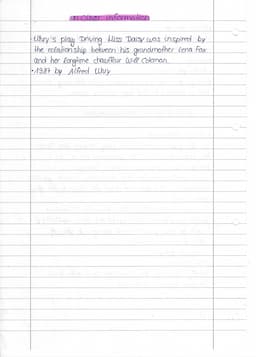 information
· Uhry's play Driving Miss Daisy was inspired by
the relationship between his grandmother Lena Fox
and her longtime chauffeur Will Coleman.
· 1987 by Alfred Uhry